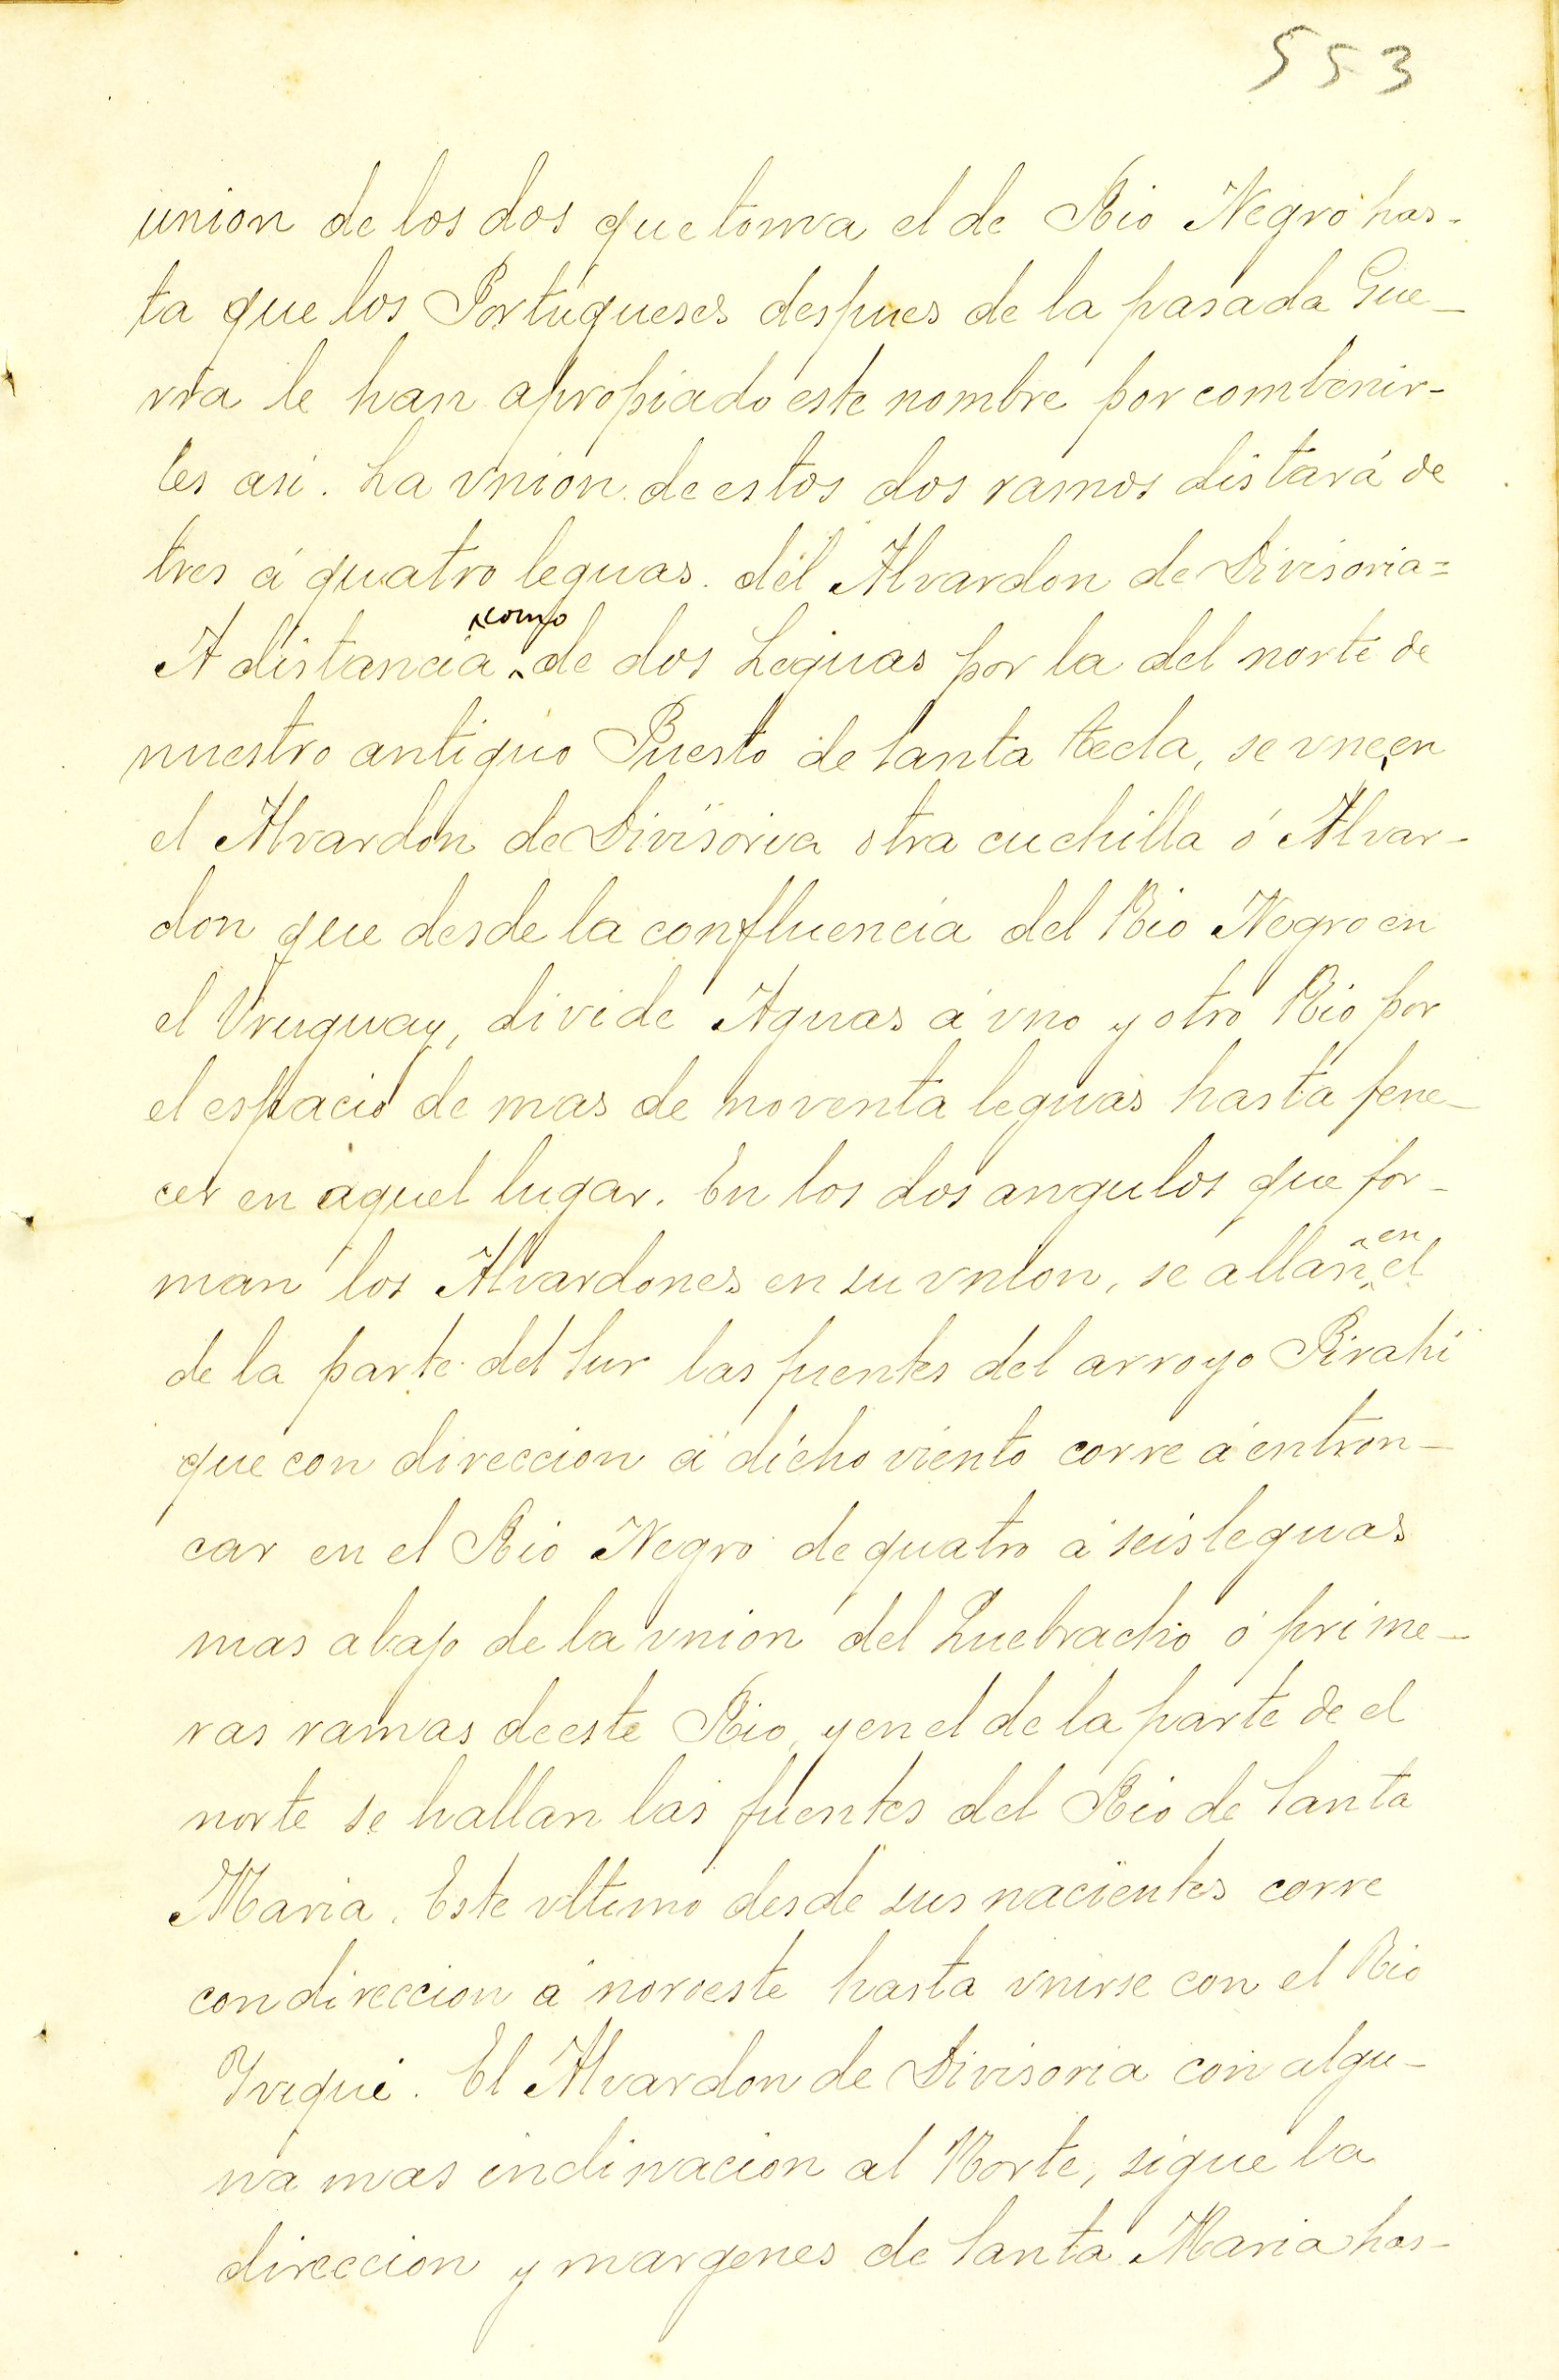 553
union de los dos que toma el de Rio Negro has-
ta que los Portugueses despues de la pasada Gue-
rra le han apropiado este nombre por combenir-
les asi. La vnion de estos dos ramos distará de
tres á quatro leguas. del Alvardon de Divisoria=
como
A distancia de dos Leguas por la del norte de
nuestro antiguo Puesto de Santa tecla, se vne, en
el Alvardon de Divisoria otra cuchilla ó Alvar-
don que desde la confluencia del Rio Negro en
el Vruguay, divide Aguas á vno y otro Rio por
el espacio de mas de noventa leguas hasta fene-
cer en aquel lugar. En los dos angulos que for-
man los Alvardones en su vnion, se allan en el
de la parte del Sur las fuentes del arroyo Pirahi
que con direccion á dicho viento corre á entron-
car en el Rio Negro de quatro á seis leguas
mas abajo de la vnion del Quebracho ó prime-
ras ramas de este Rio, y en el de la parte de el
norte se hallan las fuentes del Rio de Santa
Maria. Este vltimo desde sus nacientes corre
con direccion á noroeste hasta vnirse con el Rio
Yviqui. El Alvardon de Divisoria con algu-
na mas inclinacion al Norte, sigue la
direccion y margenes de Santa Maria has-